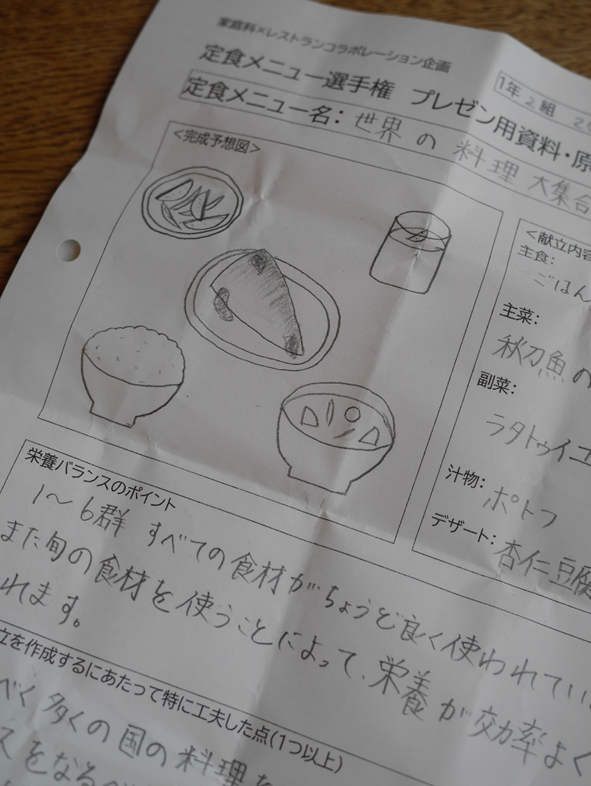 家庭科×レストランコラボレーション企画
定食メニュー選手権 プレゼン用資料・原
1年2組
定食メニュー名: 世界の料理大集合
<完成予想図>
<献立内容
主食:
ごはん
主菜:
秋刀魚の
副菜:
ラタトゥイユ
汁物:
ポトフ
デザート:
杏仁豆腐
栄養バランスのポイント
1〜6群 すべての食材がちょうど良く使われてい
また旬の食材を使うことによって、栄養が効率よく
れます。
立を作成するにあたって特に工夫した点(1つ以上)
べく多くの国の料理を
スをなるべ